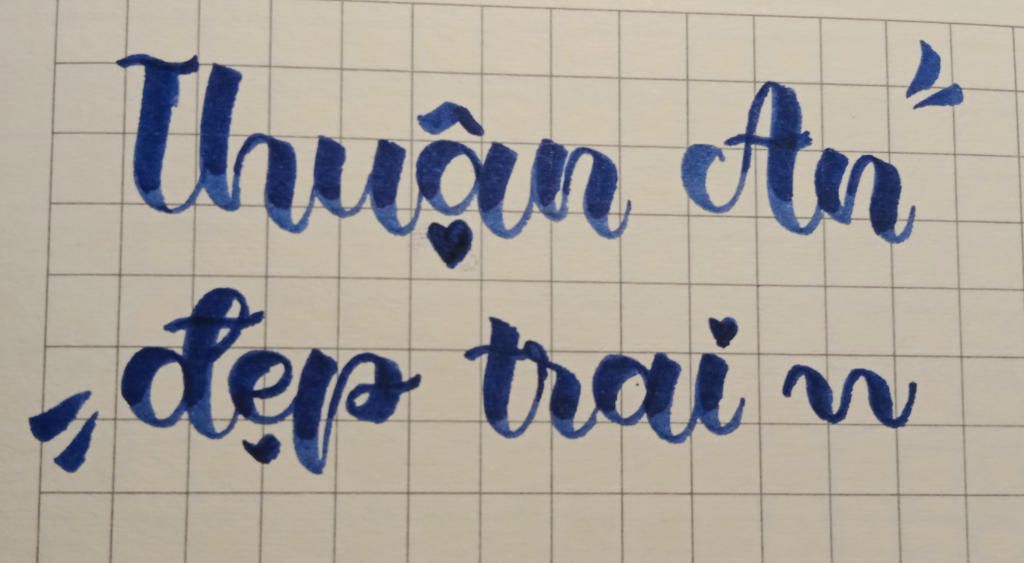 Thuận An
đẹp trai ~